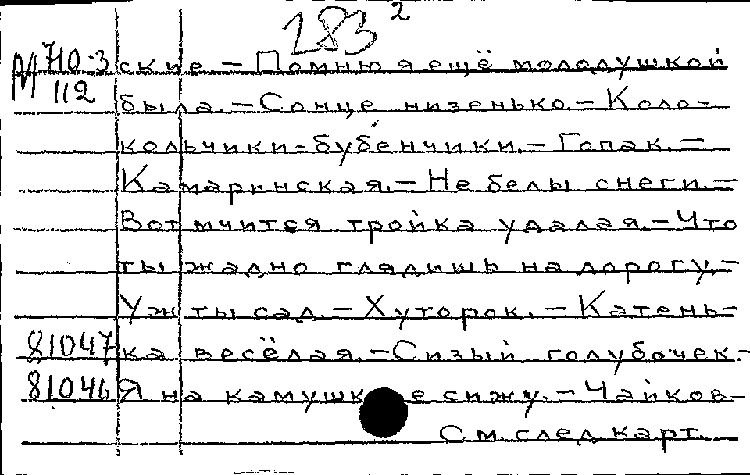 283 2
М 710-3 ские.-Помню я ещё молодушкой
112 была.-Сонце низенько.-Коло-
кольчики-бубенчики.-Гопак.-
Камаринская.-Не белы снеги.-
Вот мчится тройка удалая.-Что
ты жадно глядишь на дорогу.-
Уж ты сад.-Хуторок.-Катень-
81047 ка весёлая.-Сизый голубочек.-
81046 Я на камушке сижу.-Чайков-
См.след.карт.